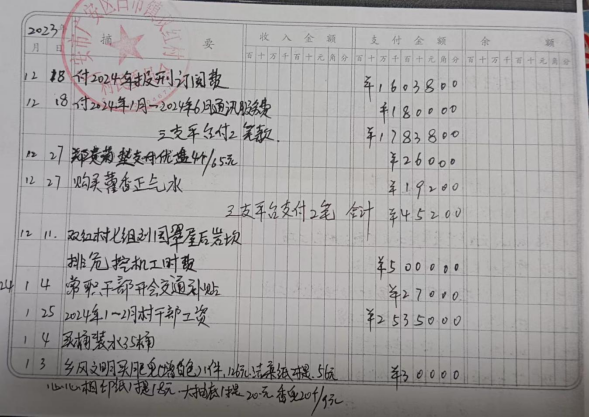 2023年
月 日 摘 要 收入金额 支付金额 余 额
百十万千百十元角分 百十万千百十元角分 百十万千百十元角分
12 18 付2024年报刊订阅费 ¥1603800
12 18 付2024年1月-2024年6月通讯服务费 ¥180000
三支平台付2笔款. ¥1783800
12 27 支丹优盘4个/65元 ¥26000
12 27 购买藿香正气水 ¥19200
三支平台支付2笔 合计 ¥45200
12 11. 双红村七组刘国翠屋后岩坎
排危挖机工时费 ¥500000
24 1 4 常职干部开会交通补贴 ¥27000
1 25 2024年1-2月村干部工资 ¥2535000
1 4 买桶装水35桶
1 3 乡风文明买肥皂 ¥30000
心心相印纸1提 20元 香皂20个/9元